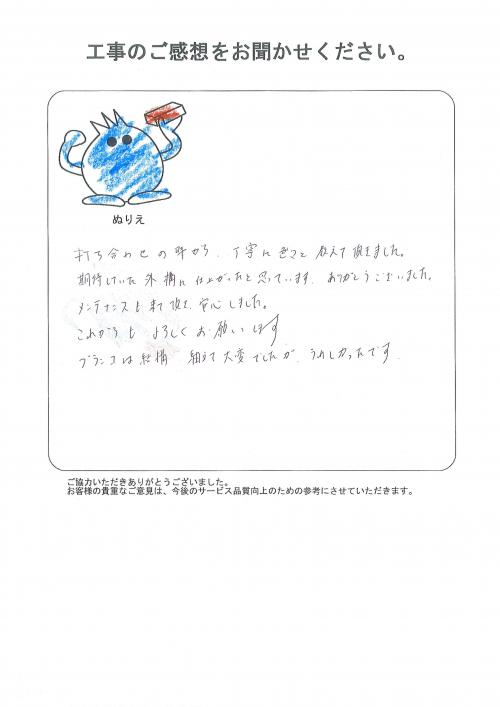 工事のご感想をお聞かせください。
ぬりえ
打ち合わせの時から、丁寧に 教えて頂きました。
期待していた外構に仕上がったと思っています。ありがとうございました。
メンテナンスも来て頂き、安心しました。
これからもよろしくお願いします
ブランコは結構 大変でしたが、うれしかったです
ご協力いただきありがとうございました。
お客様の貴重なご意見は、今後のサービス品質向上のための参考にさせていただきます。